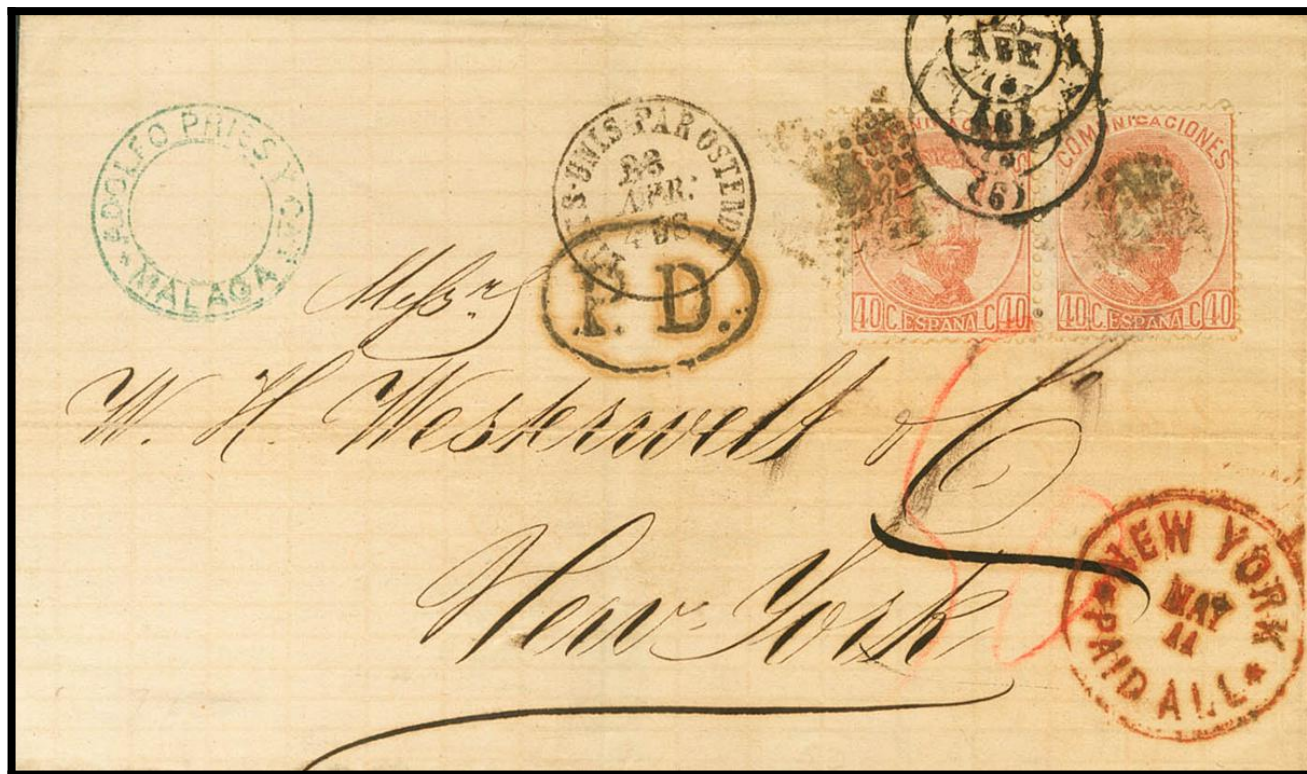 ADOLFO PRIES Y CIA
* MALAGA *
ETATS-UNIS PAR OSTENDE
23
APR.
P. D.
ABR
73
(6)
(6)
COMUNICACIONES
40 C. ESPAÑA C 40
COMUNICACIONES
40 C. ESPAÑA C 40
Messrs
W. H. Westervelt & Co
New-York
NEW YORK
MAY
11
* PAID ALL *